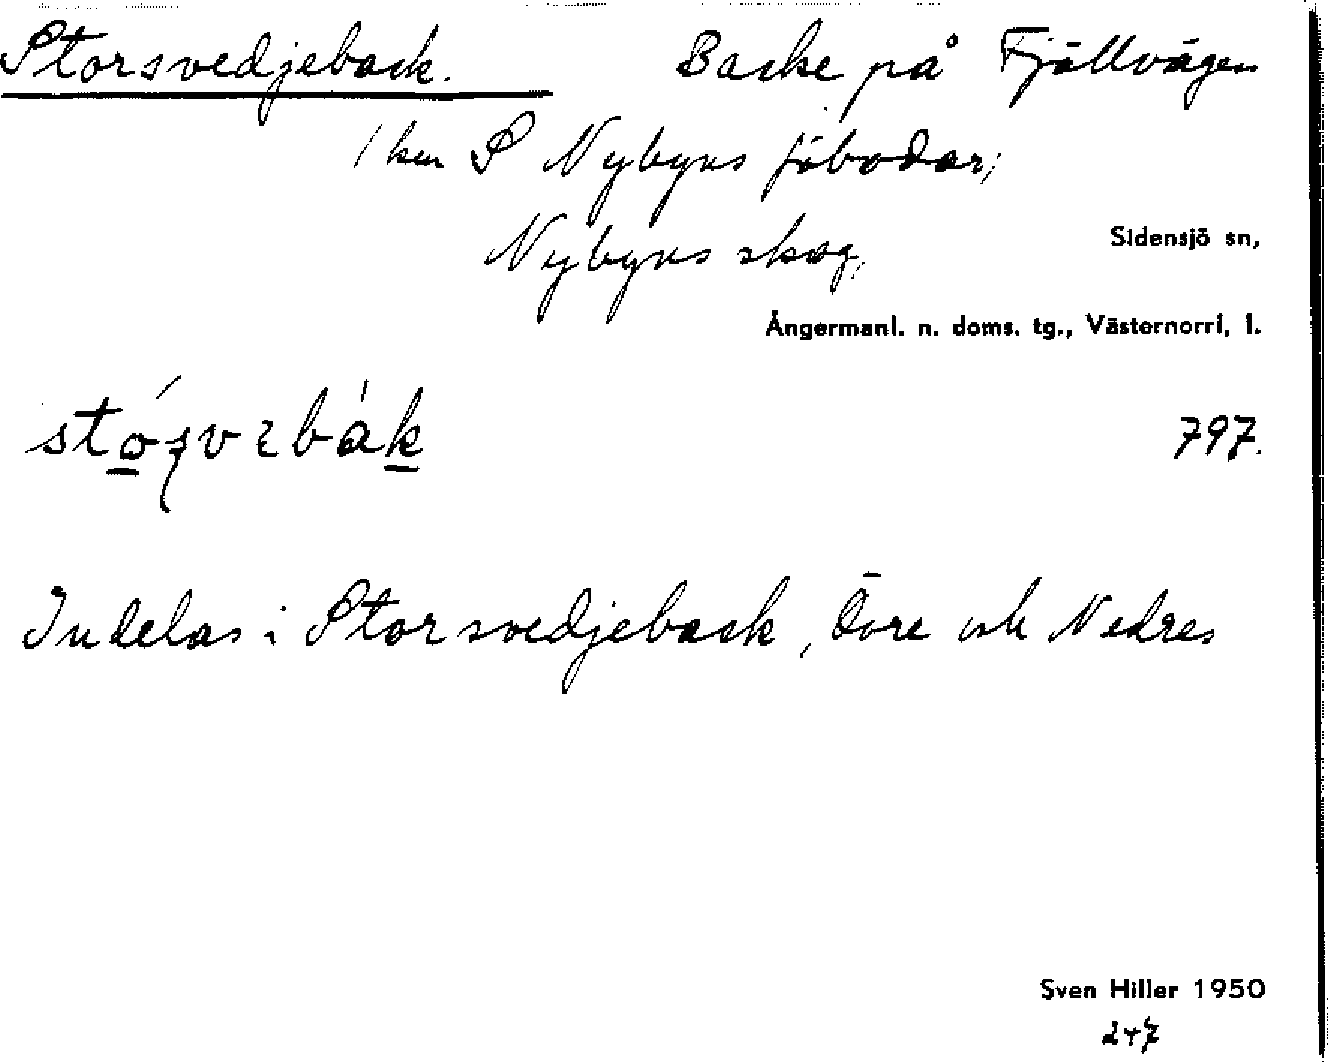 Storsvedjeback. Backe på Fjällvägen
1 km S Nybyns fäbodar;
Nybyns skog.
Sidensjö sn,
Ångermanl. n. doms. tg., Västernorrl. l.
797.
Indelas i Storsvedjeback, Övre och Nedre
Sven Hiller 1950
247